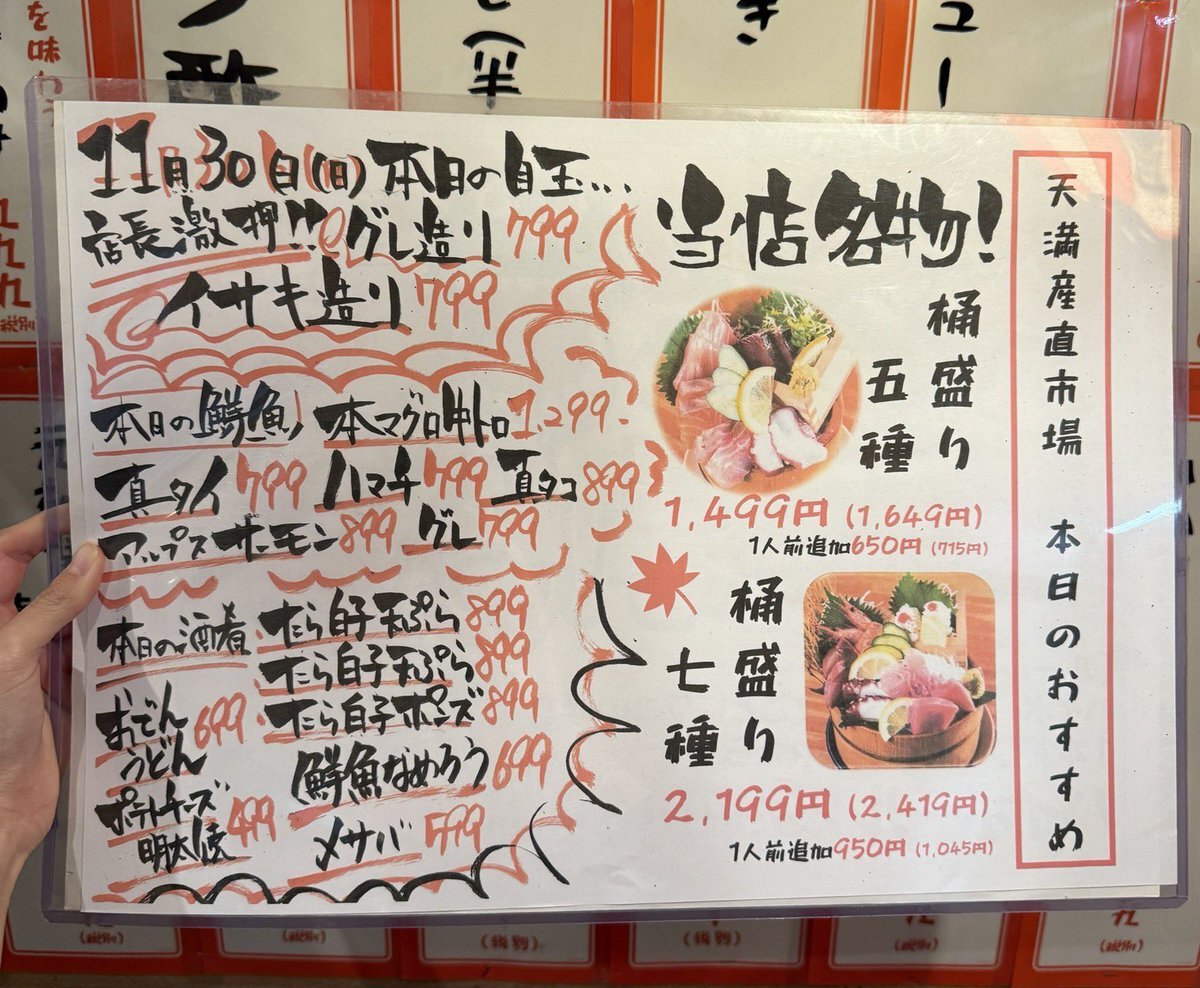 11月30日(日)本日の目玉...
店長激押!!グレ造り 799
イサキ造り 799
本日の鮮魚 本マグロ中トロ 1,299
真タイ 799 ハマチ 799 真タコ 899
アップスサーモン 899 グレ 799
本日の酒肴・たら白子天ぷら 899
たら白子天ぷら 899
おでん 699・たら白子ポンズ 899
うどん
鮮魚なめろう 699
ポテトチーズ
明太 499
〆サバ 599
当店名物!
桶盛り
五種
1,499円(1,649円)
1人前追加650円(715円)
桶盛り
七種
2,199円(2,419円)
1人前追加950円(1,045円)
天満産直市場 本日のおすすめ
を味わ
酢
(半
き
ュー
(税別)
(税別)
(税別)
(税別)
(税別)
(税別)
(税別)